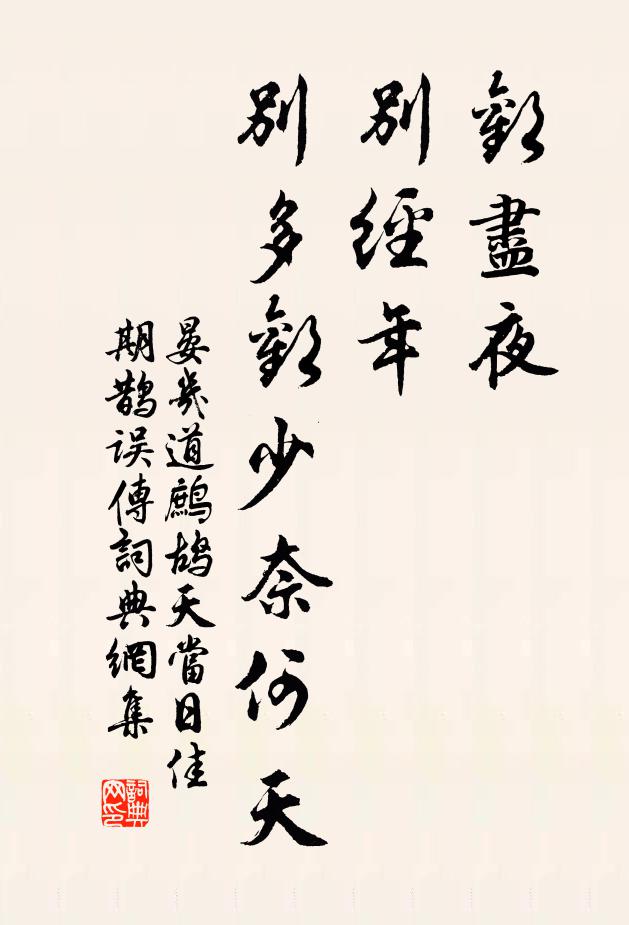 歡盡夜
別經年
別多歡少奈何天
晏幾道鷓鴣天當日佳
期鵲誤傳詞典網集
詞典
网印